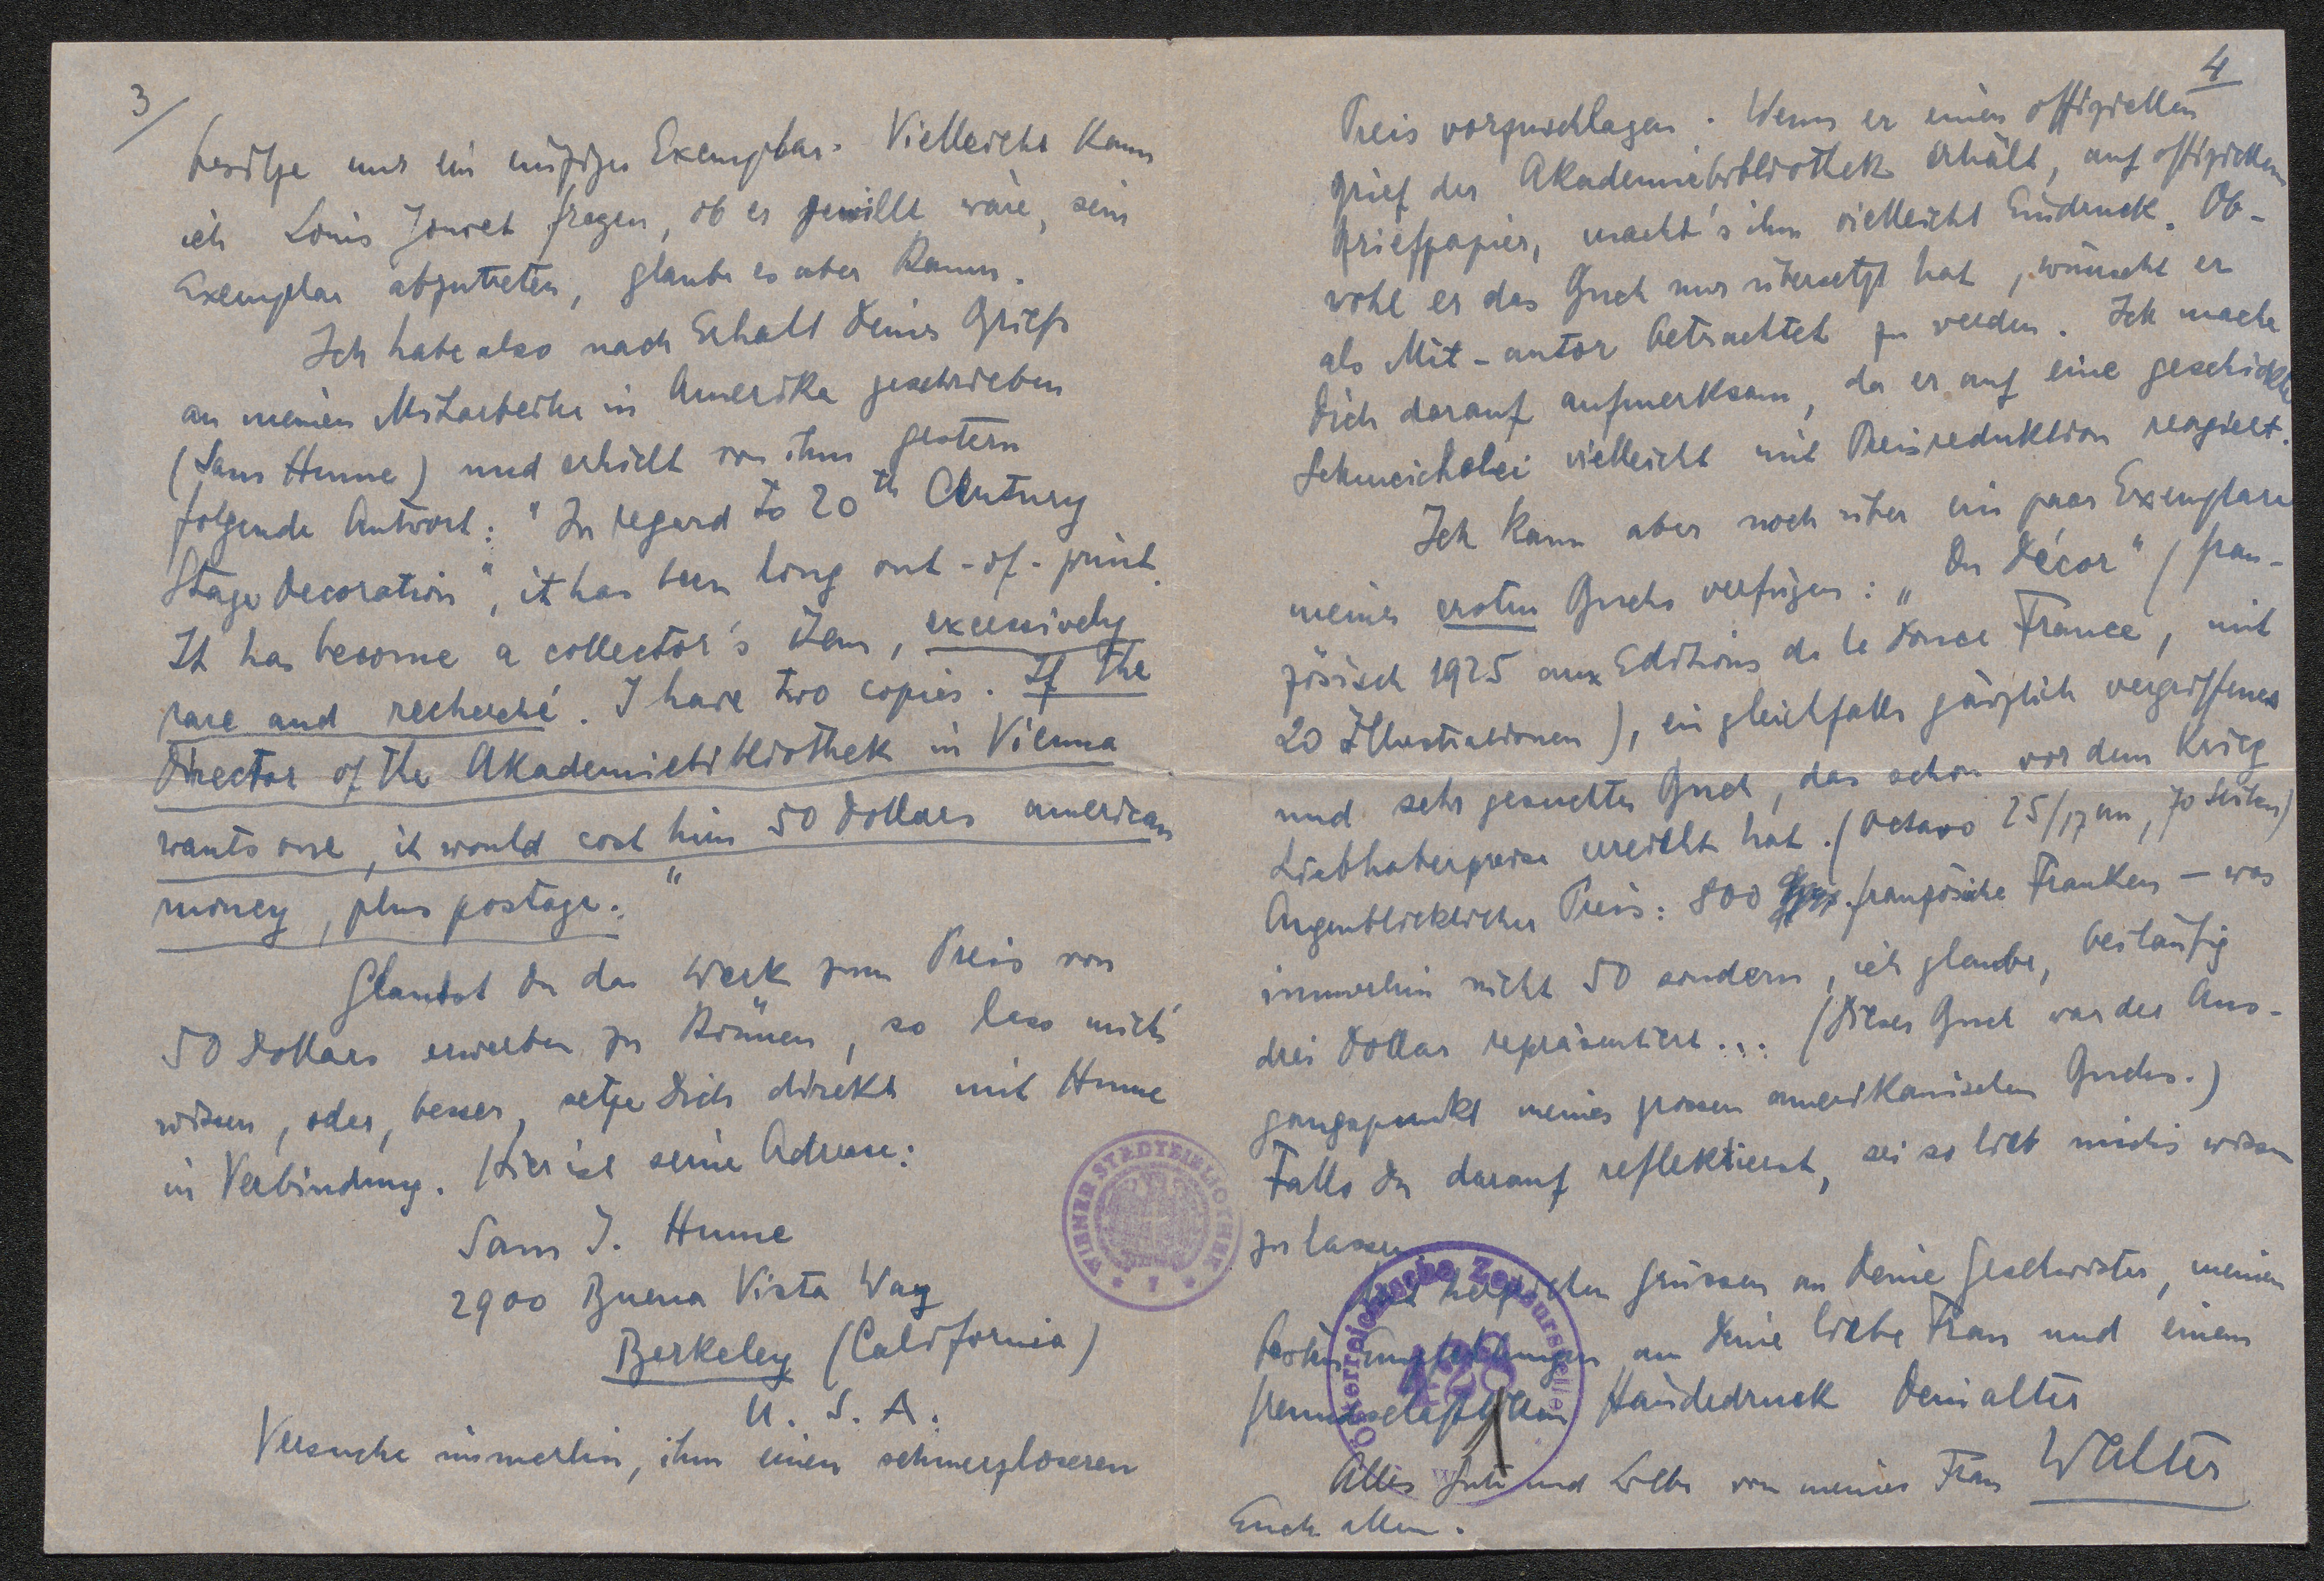 3/
besitze nur ein einziges Exemplar. Vielleicht kann
ich Louis Jouvet fragen, ob er gewillt wäre, sein
Exemplar abzutreten, glaube es aber kaum.
Ich habe also nach Erhalt Deines Briefs
an meinen Mitarbeiter in Amerika geschrieben
(Sam Hume) und erhielt von ihm gestern
folgende Antwort: "In regard to 20th Century
Stage Decoration", it has been long out-of-print.
It has become a collector's item, excessively
rare and recherché. I have two copies. If the
Director of the Akademiebibliothek in Vienna
wants one, it would cost him 50 Dollars american
money, plus postage."
Glaubst Du das Werk zum Preis von
50 Dollars erwerben zu können, so lass mich's
wissen, oder, besser, setze Dich direkt mit Hume
in Verbindung. Hier ist seine Adresse:
Sam J. Hume
2900 Buena Vista Way
Berkeley (California)
U. S. A.
Versuche immerhin, ihm einen schmerzloseren
WIENER STADTBIBLIOTHEK
* 7 *
4
Preis vorzuschlagen. Wenn er einen offiziellen
Brief der Akademiebibliothek erhält, auf offiziellem
Briefpapier, macht's ihm vielleicht Eindruck. Ob-
wohl er das Buch nur übersetzt hat, wünscht er
als Mit-autor betrachtet zu werden. Ich mache
Dich darauf aufmerksam, da er auf eine geschickte
Schmeichelei vielleicht mit Preisreduktion reagiert.
Ich kann aber noch über ein paar Exemplare
meines ersten Buchs verfügen: „Du Décor" (fran-
zösisch 1925 aux Editions de la Douce France, mit
20 Illustrationen), ein gleichfalls gänzlich vergriffenes
und sehr gesuchtes Buch, das schon vor dem Krieg
Liebhaberpreise erreicht hat. (Octavo 25/17 cm, 70 Seiten)
Augenblicklicher Preis: 800 französische Franken – was
immerhin nicht 50 sondern, ich glaube, beiläufig
drei Dollar repräsentiert... (Dieses Buch war der Aus-
gangspunkt meines grossen amerikanischen Buchs.)
Falls Du darauf reflektierst, sei so lieb mich's wissen
zu lassen.
Mit herzlichen Grüssen an Deine Geschwister, meinen
besten Empfehlungen an Deine liebe Frau und einem
freundschaftlichen Händedruck Dein alter
Walter
Alles Gute und Liebe von meiner Frau
Euch allen.
Österreichische Zensurstelle